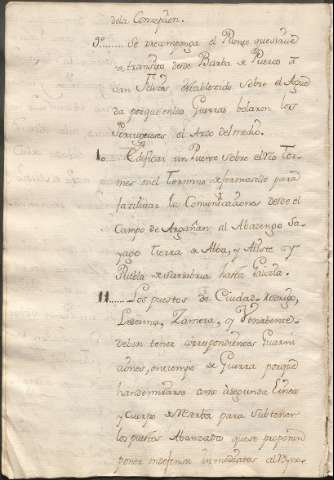 dela Concepcion.
9º....... Se recomponga el Puente, que sirve
a transito desde Barba de Puerco a
San Felices establecido sobre el Agueda
porque enlas Guerras bolaron los
Portugueses el Arco del medio.
10.... Edificar un Puente sobre el Rio Tor-
mes en el Termino de fermoselle para
facilitar la Comunicaciones desde el
Campo de Argañan, al Abadengo Sa-
yago tierra de Alba, y Aliste y
Puebla de Sanabria hasta Galicia.
11...... Los puestos de Ciudad Rodrigo,
Ledesma, Zamora, y Venabente
deben tener correspondientes Guarni
ciones, en tiempo de Guerra porque
han de mirarse como de segunda Linea
y Cuerpo de Reserva para sub tener
los puestos Abanzados que se proponen
poner en defensa inmediatos al